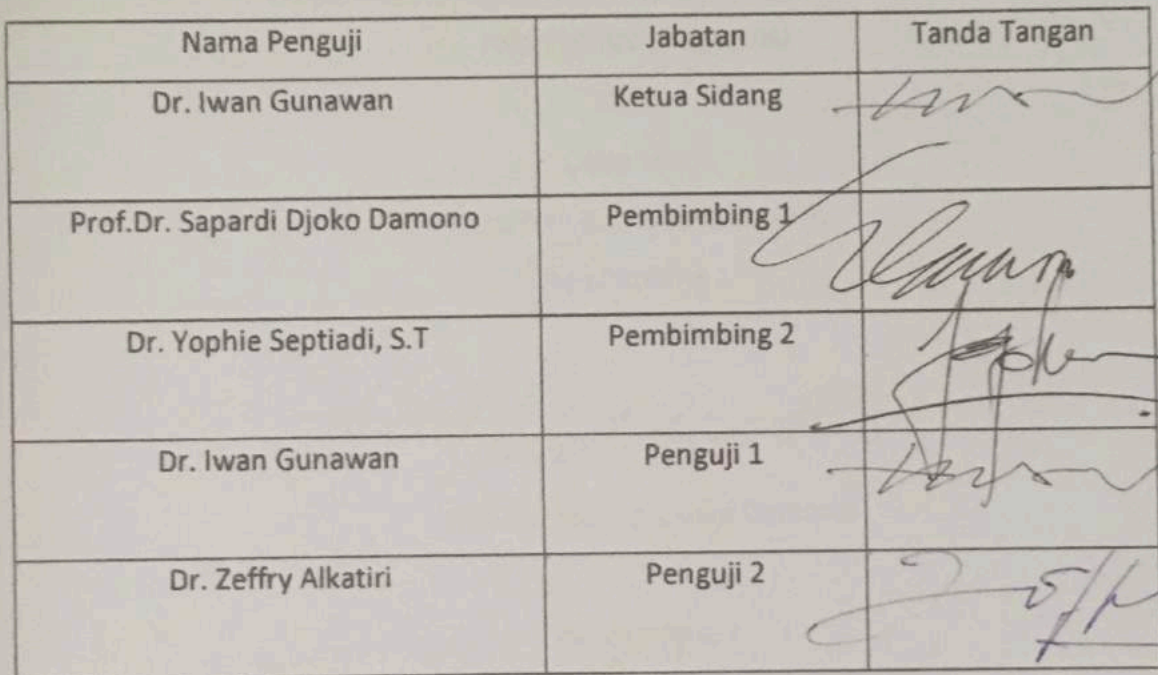 Nama Penguji Jabatan Tanda Tangan
Dr. Iwan Gunawan Ketua Sidang
Prof.Dr. Sapardi Djoko Damono Pembimbing 1
Dr. Yophie Septiadi, S.T Pembimbing 2
Dr. Iwan Gunawan Penguji 1
Dr. Zeffry Alkatiri Penguji 2